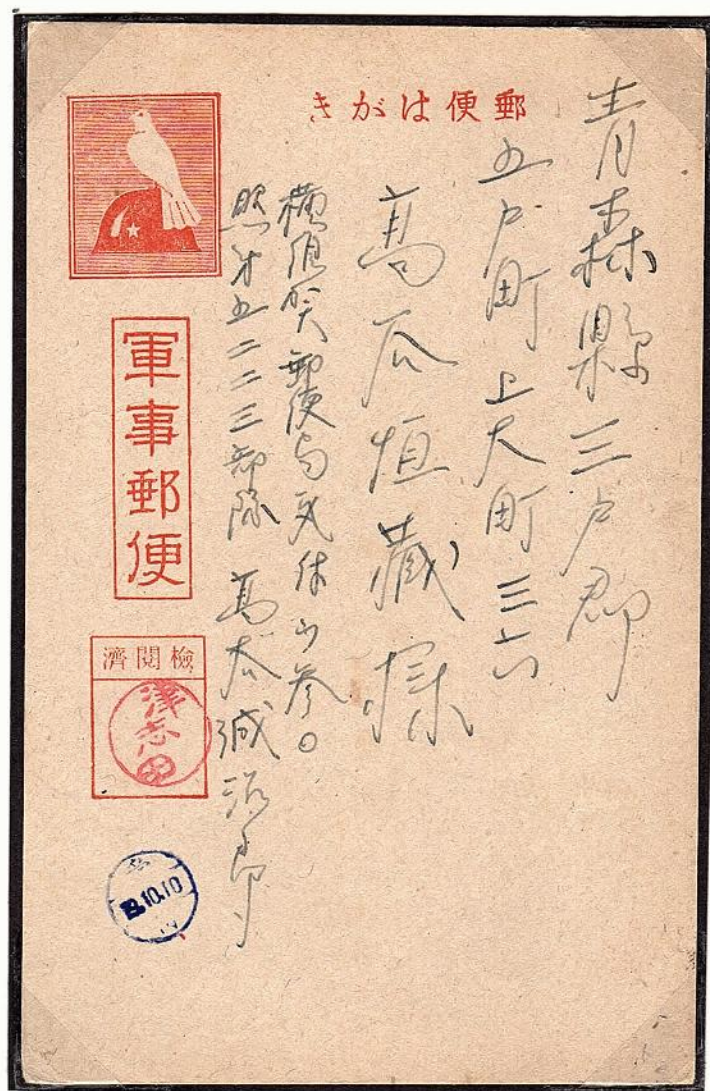 郵便はがき
青森縣三戸郡
五戸町上大町三六
髙瓜恒藏様
横須賀郵便局気付ウ参〇
照オ五二二三部隊 髙
治郎
軍事郵便
檢閲濟
津志田
10.10